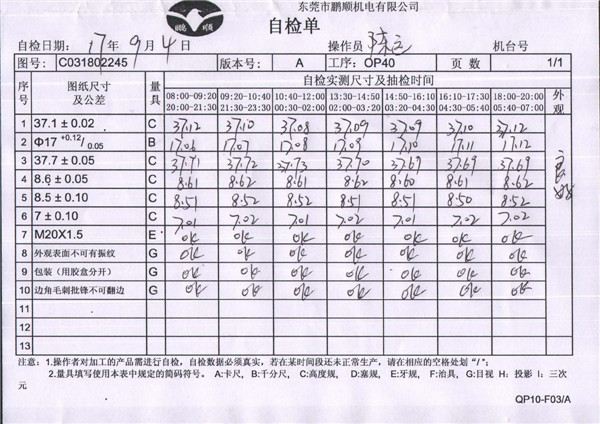 东莞市鹏顺机电有限公司
鹏 顺
自检单
自检日期: 17年 9月 4日 操作员 机台号
图号: C031802245 版本号: A 工序: OP40 页 数 1/1
序号 图纸尺寸及公差 量具 自检实测尺寸及抽检时间 外观
08:00-09:20 09:20-10:40 10:40-12:00 13:30-14:50 14:50-16:10 16:10-17:30 18:00-20:00
20:00-21:30 21:30-23:30 00:30-02:00 02:00-03:20 03:20-04:30 04:30-05:40 05:40-07:00
1 37.1 ± 0.02 C 37.12 37.10 37.08 37.09 37.09 37.10 37.12 良好
2 Φ17 +0.12/ 0.05 B 17.06 17.07 17.08 17.09 17.10 17.11 17.12
3 37.7 ± 0.05 C 37.71 37.72 37.73 37.70 37.69 37.69 37.69
4 8.6 ± 0.05 C 8.61 8.62 8.61 8.62 8.60 8.61 8.62
5 8.5 ± 0.10 C 8.51 8.52 8.52 8.51 8.51 8.50 8.52
6 7 ± 0.10 C 7.01 7.02 7.01 7.02 7.01 7.02 7.02
7 M20X1.5 E OK OK OK OK OK OK OK
8 外观表面不可有振纹 G OK OK OK OK OK OK OK
9 包装（用胶盒分开） G OK OK OK OK OK OK OK
10 边角毛刺批锋不可翻边 G OK OK OK OK OK OK OK
11
12
13
注意: 1.操作者对加工的产品需进行自检，自检数据必须真实，若在某时间段还未正常生产，请在相应的空格处划“/”;
2.量具填写使用本表中规定的简码符号。 A:卡尺, B:千分尺, C:高度规, D:塞规, E:牙规, F:治具, G:目视 H: 投影 I: 三次
元
QP10-F03/A